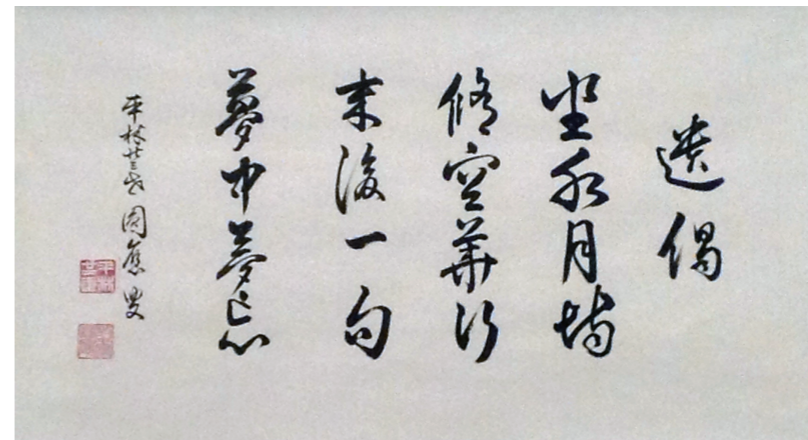 遺偈
坐水月場
脩空華行
末後一句
夢中夢忘
平林廿三世圓應叟